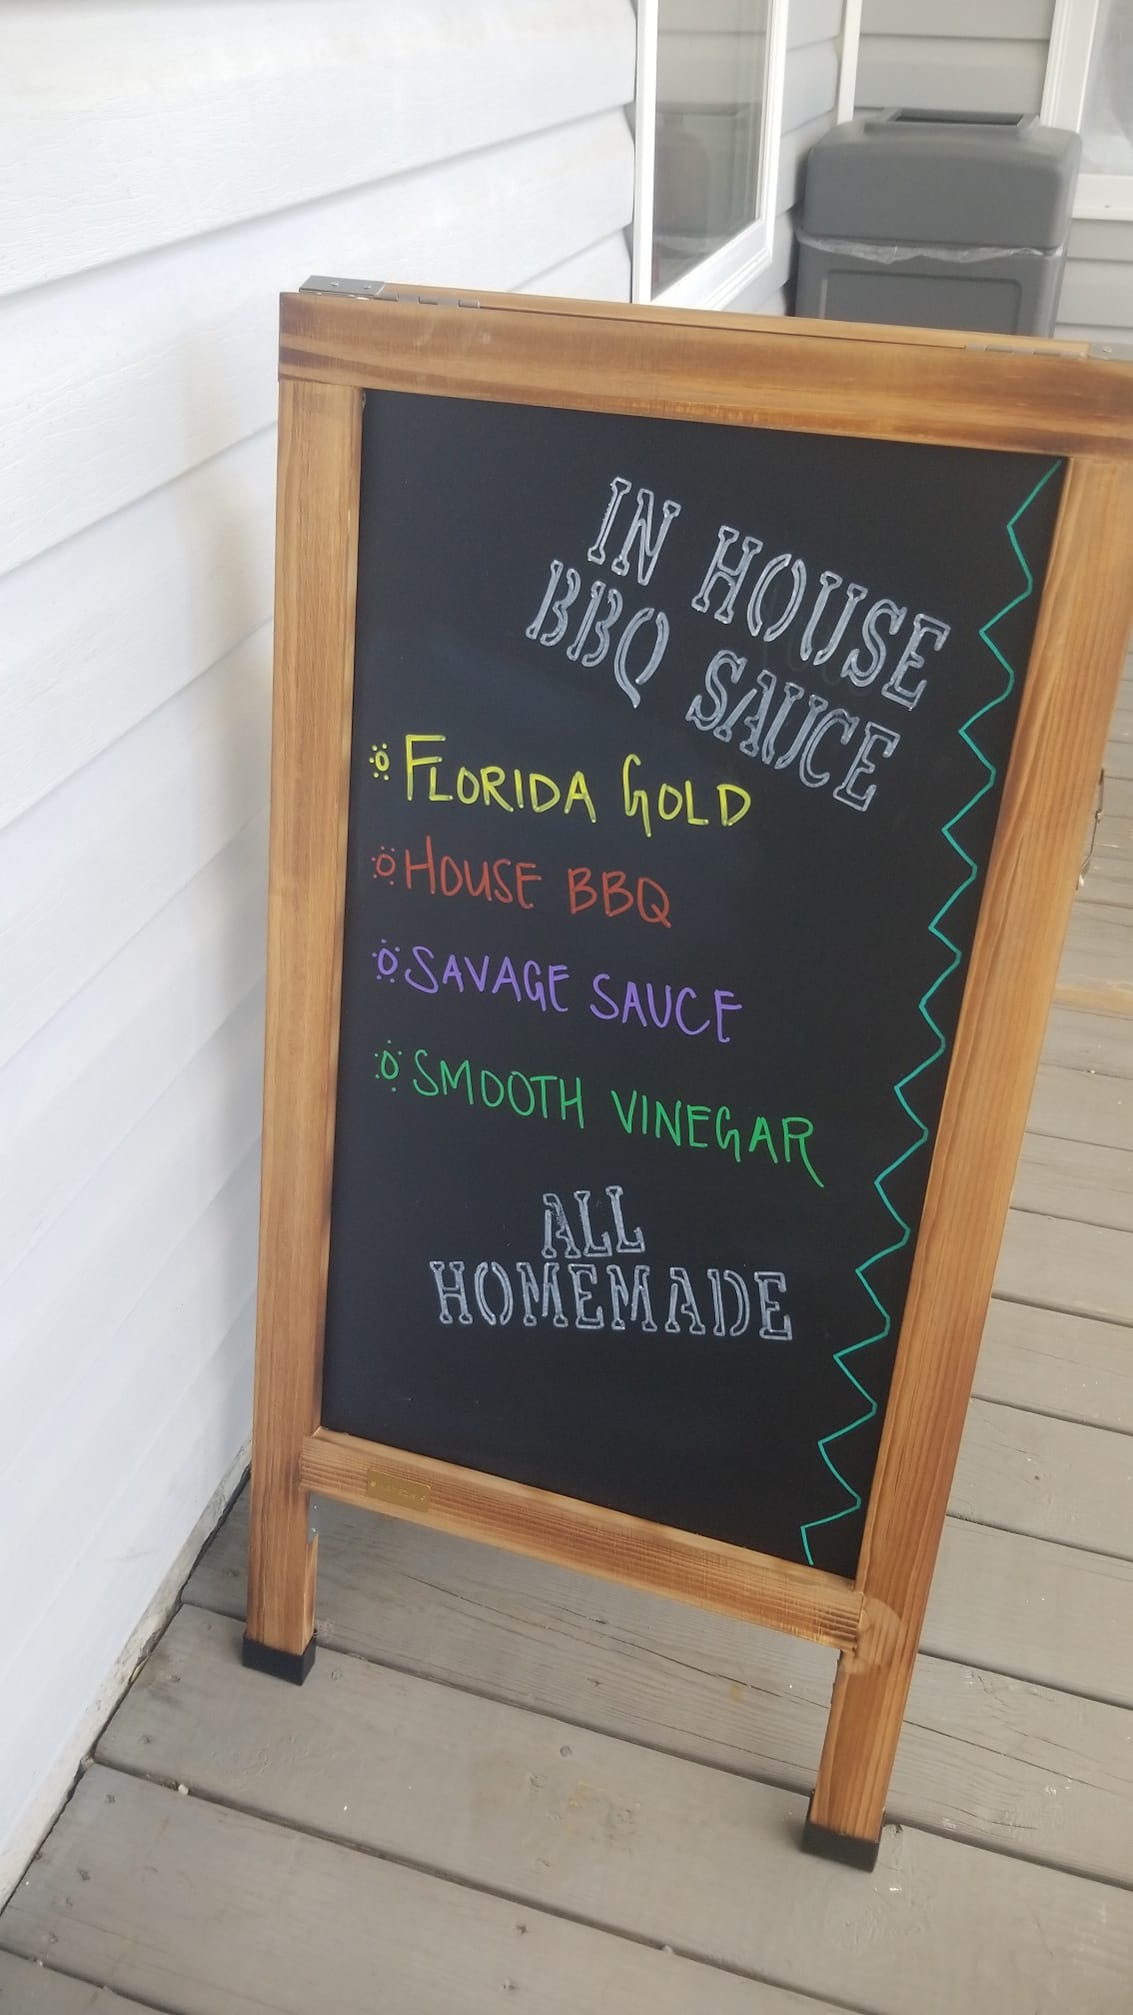 IN HOUSE
BBQ SAUCE
FLORIDA GOLD
HOUSE BBQ
SAVAGE SAUCE
SMOOTH VINEGAR
ALL
HOMEMADE